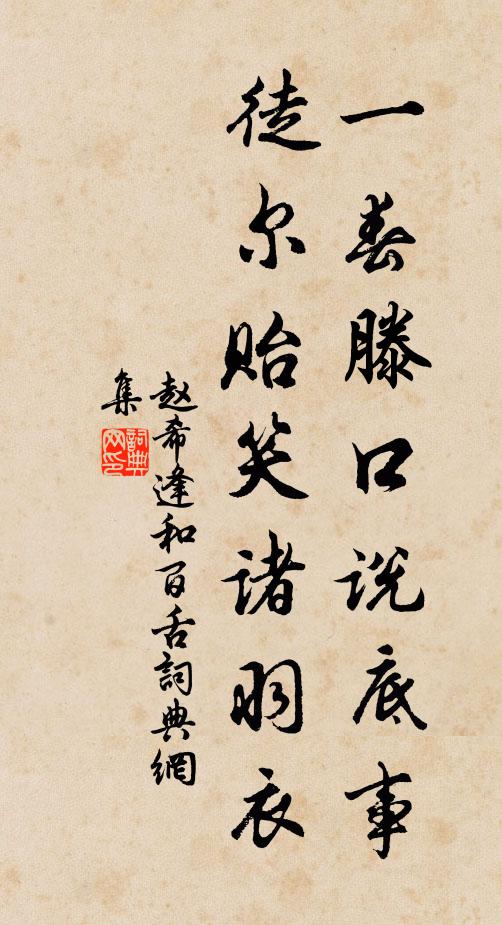 一春滕口说底事
徒尔贻笑诸羽衣
赵希逢和百舌詞典網
集
詞典
网印